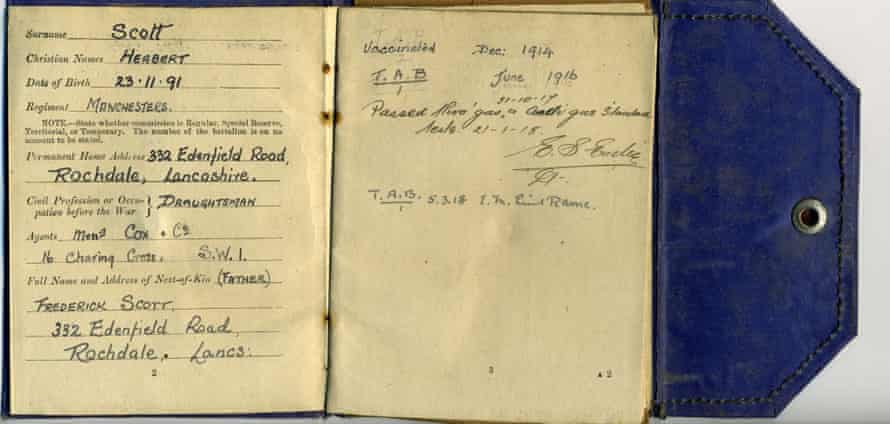 Surname Scott
Christian Names HERBERT
Date of Birth 23.11.91
Regiment MANCHESTERS.
NOTE.—State whether commission is Regular, Special Reserve,
Territorial, or Temporary. The number of the battalion is on no
account to be stated.
Permanent Home Address 332 Edenfield Road,
Rochdale, Lancashire.
Civil Profession or Occu-
pation before the War } DRAUGHTSMAN
Agents Messrs Cox & Co
16 Charing Cross. S.W.1.
Full Name and Address of Next-of-Kin (FATHER)
FREDERICK SCOTT,
332 Edenfield Road,
Rochdale, Lancs.
2
Vaccinated Dec: 1914
T.A.B June 1916
1
21-10-17
Passed thro' gas, & gas Standard
tests 21-1-18.
E. S.
T.A.B. 5.3.18
1
3
A 2